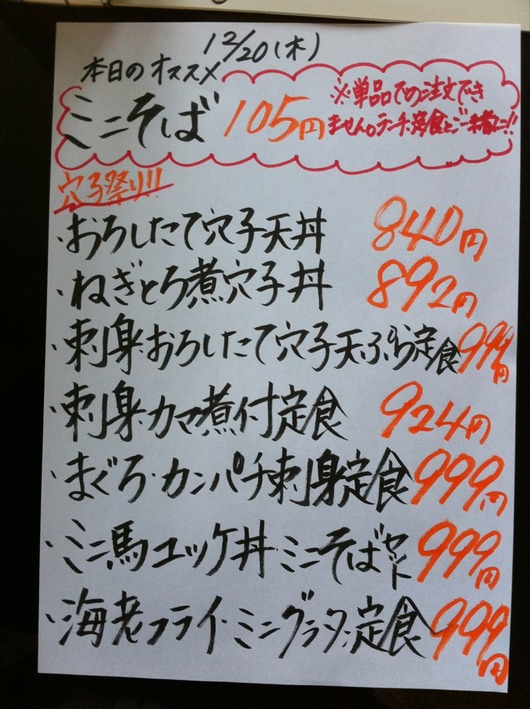 12/20(木)
本日のオススメ
ミニそば 105円
※単品での注文でき
ません。ランチ・定食とご一緒に!!
穴子祭り!!
・おろしたて穴子天丼 840円
・ねぎとろ煮穴子丼 892円
・刺身おろしたて穴子天ぷら定食 999円
・刺身・カマ煮付定食 924円
・まぐろ・カンパチ刺身定食 999円
・ミニ馬ユッケ丼・ミニそばセット 999円
・海老フライ・ミニグラタン定食 999円